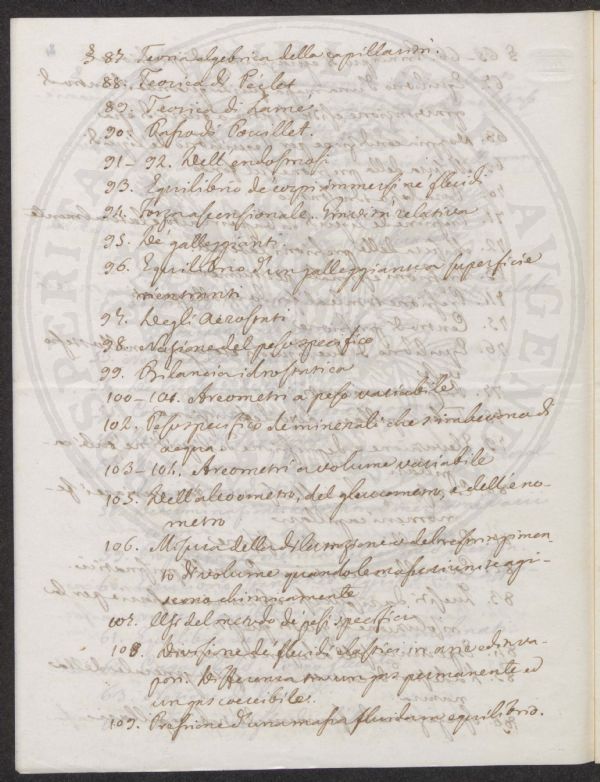 § 87. Teoria algebrica della capillarità.
88. Teorica di Péclet
89. Teorica di Lamé
90. di Pouillet.
91-92. Dell'endosmosi
93. Equilibrio de' corpi immersi ne' fluidi
94. Forza ascensionale. relativa
95. De' galleggianti
96. Equilibrio d'un galleggiante a superficie
rientranti
97. Degli aerostati
98. Nozione del peso specifico
99. Bilancia idrostatica
100-101. Areometri a peso variabile
102. Peso specifico de' minerali che s'imbevono di
acqua
103-104. Areometri a volume variabile
105. Dell'alcoometro, del glucometro, e dell'eno-
metro
106. Misura della dilatazione e del restringimen-
to di volume quando le masse unite agi-
scono chimicamente
107. Usi del metodo de' pesi specifici
108. Divisione de' fluidi elastici in aree ed in va-
pori. Differenza tra un gas permanente ed
un gas coercibile.
109. Pressione d'una massa fluida in equilibrio.